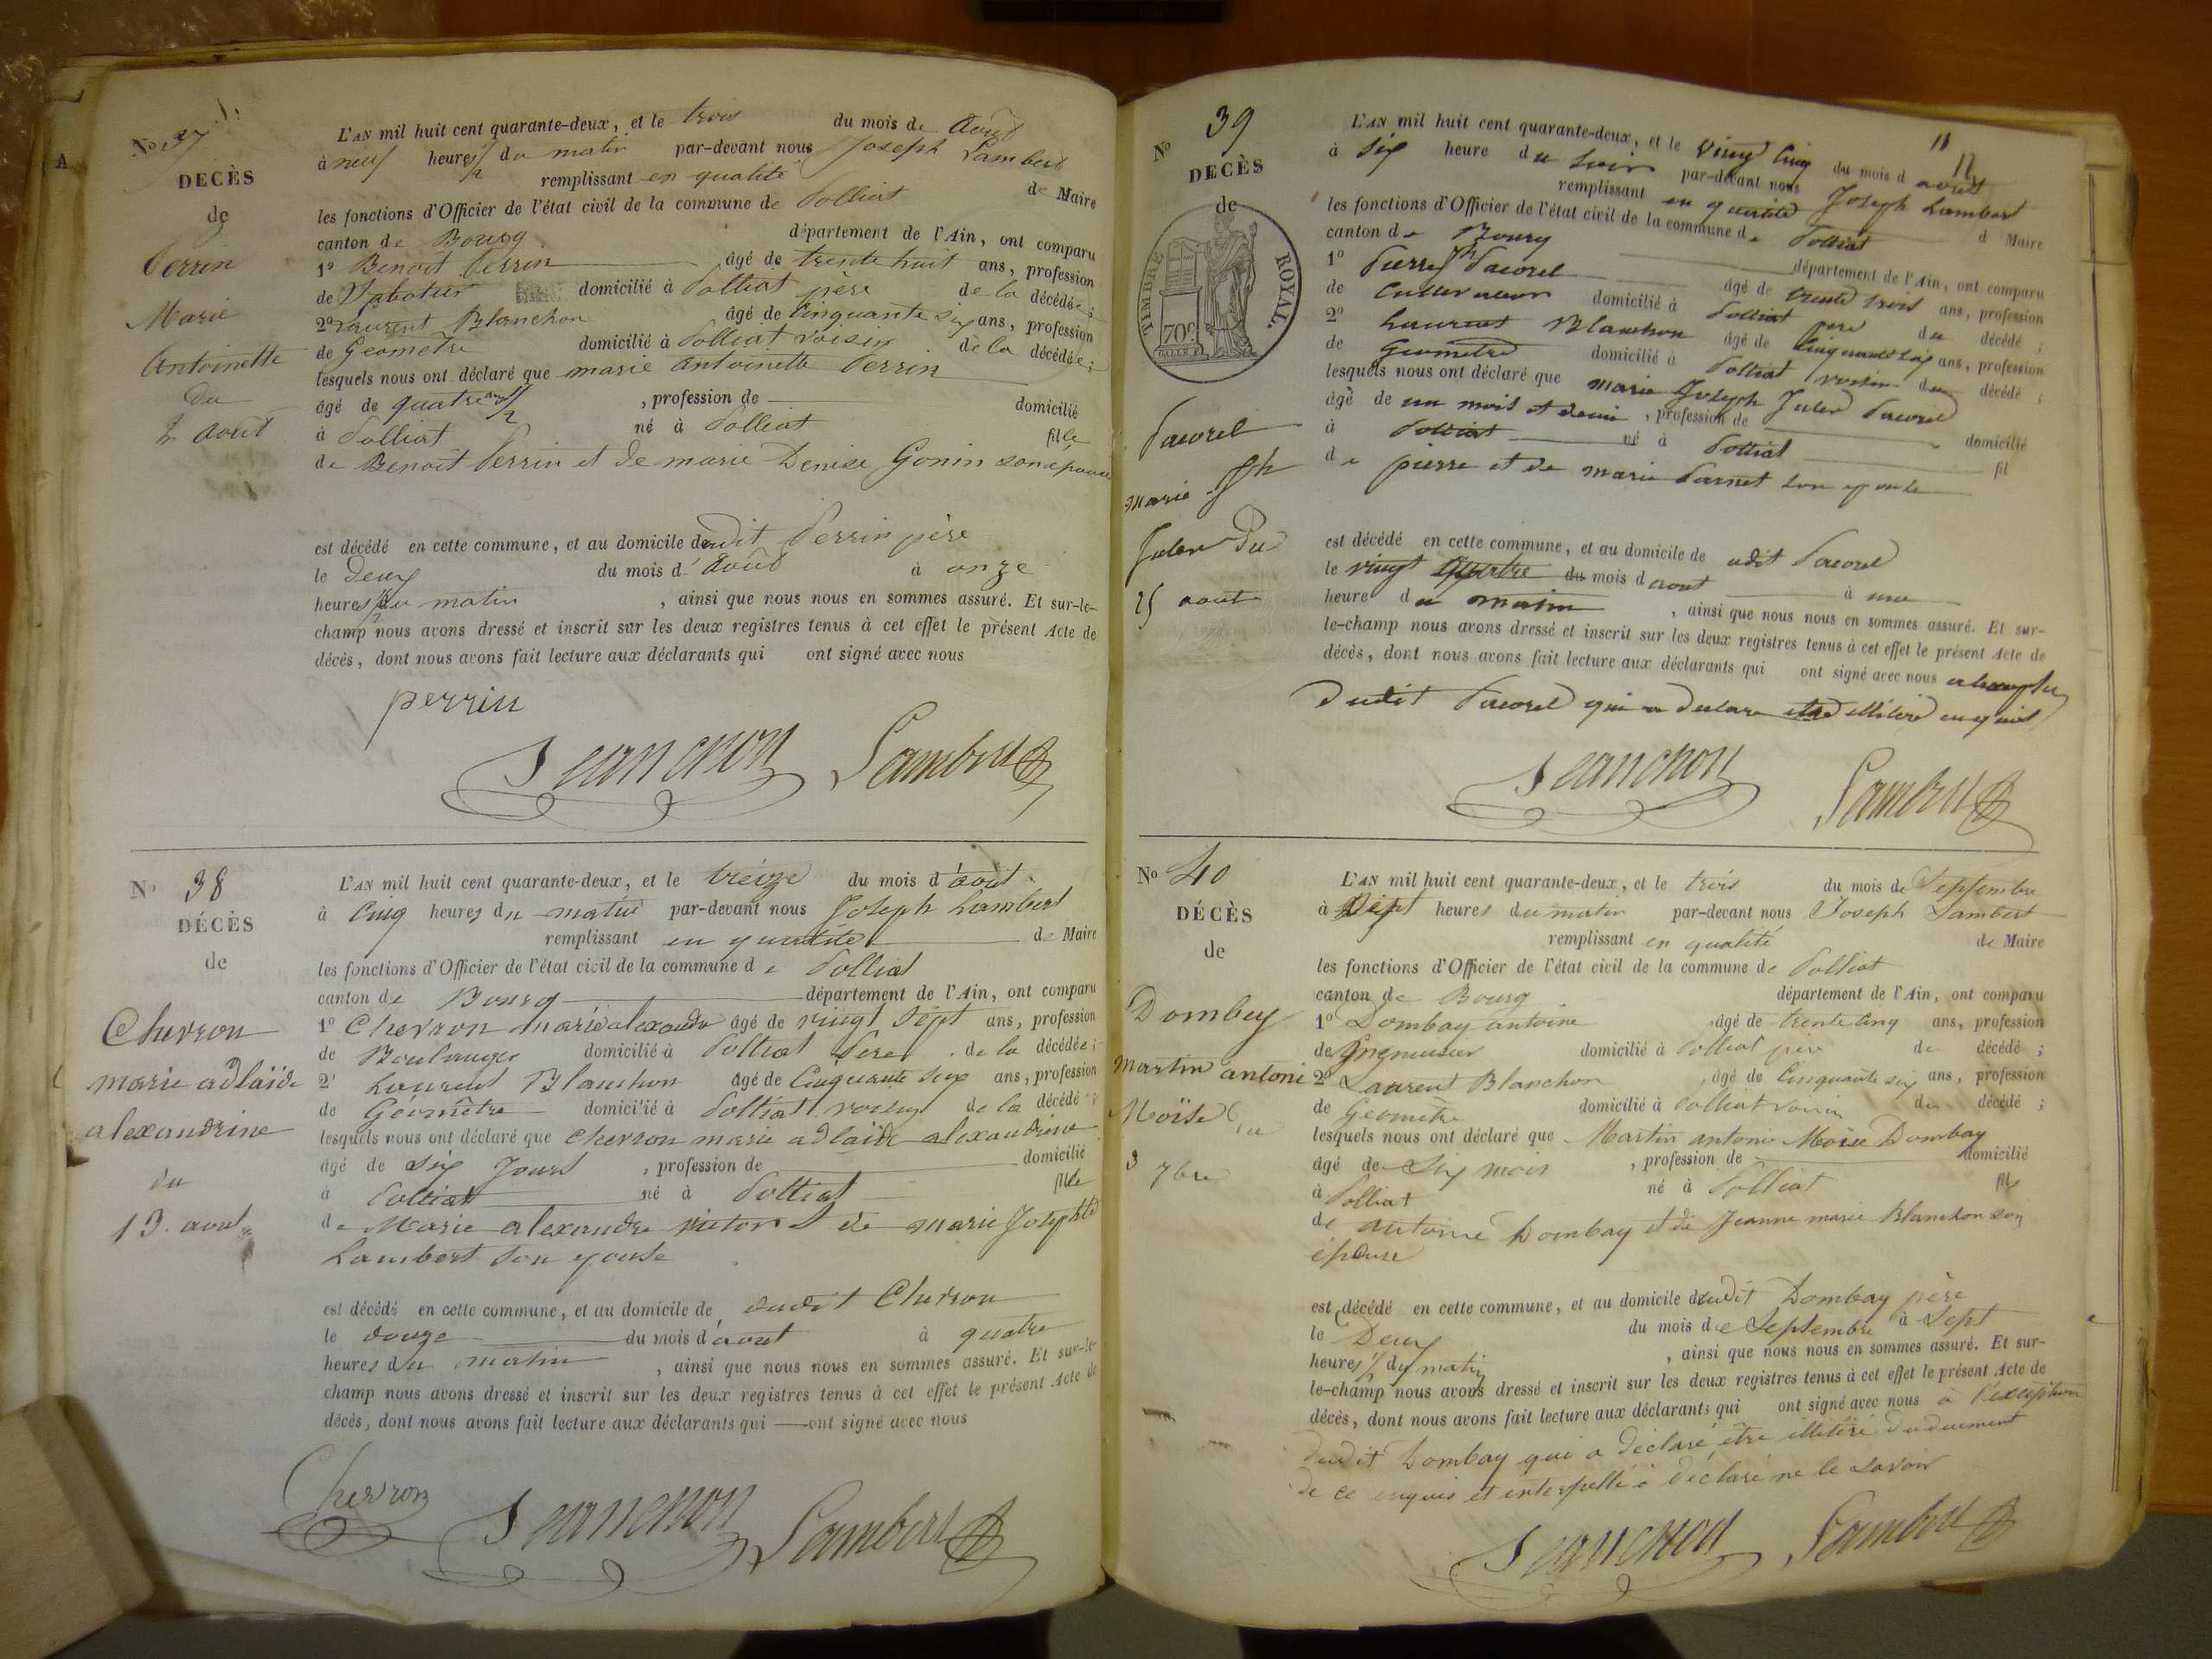 No 37
DECÈS
de
Perrin
Marie
Antoinette
du
2 août
L'AN mil huit cent quarante-deux, et le trois du mois de Août
à neuf heures 1/2 du matin par-devant nous Joseph Lambert
remplissant en qualité de Maire
les fonctions d'Officier de l'état civil de la commune de Polliat
canton de Bourg département de l'Ain, ont comparu
1º Benoit Perrin âgé de trente huit ans, profession
de Sabotier domicilié à Polliat père de la décédée;
2º Laurent Blanchon âgé de Cinquante six ans, profession
de Geometre domicilié à Polliat voisin de la décédée;
lesquels nous ont déclaré que marie antoinette Perrin
âgé de quatre ans 1/2, profession de domicilié
à Polliat né à Polliat fille
de Benoit Perrin et de marie Denise Gonin son épouse
est décédé en cette commune, et au domicile dudit Perrin père
le Deux du mois d'août à onze
heures 1/2 du matin, ainsi que nous nous en sommes assuré. Et sur-le-
champ nous avons dressé et inscrit sur les deux registres tenus à cet effet le présent Acte de
décès, dont nous avons fait lecture aux déclarants qui ont signé avec nous
perrin
Blanchon Lambert
No 38
DÉCÈS
de
Chevron
marie adlaïde
alexandrine
du
13. aout
L'AN mil huit cent quarante-deux, et le treize du mois d'août
à Cinq heures du matin par-devant nous Joseph Lambert
remplissant en qualité de Maire
les fonctions d'Officier de l'état civil de la commune de Polliat
canton de Bourg département de l'Ain, ont comparu
1º Chevron marie alexandre âgé de vingt sept ans, profession
de Boulanger domicilié à Polliat Pere de la décédée;
2º Laurent Blanchon âgé de Cinquante six ans, profession
de Géomètre domicilié à Polliat voisin de la décédé;
lesquels nous ont déclaré que Chevron marie adlaïde alexandrine
âgé de six Jours, profession de domicilié
à Polliat né à Polliat fille
de Marie alexandre victor et de marie Josephte
Lambert son epouse
est décédé en cette commune, et au domicile de dudit Chevron
le douze du mois d'aout à quatre
heures du matin, ainsi que nous nous en sommes assuré. Et sur-le-
champ nous avons dressé et inscrit sur les deux registres tenus à cet effet le présent Acte de
décès, dont nous avons fait lecture aux déclarants qui ont signé avec nous
Chevron Blanchon Lambert
11
12
No 39
DECÈS
de
TIMBRE ROYAL.
70c.
marie Jph
25 aout
L'AN mil huit cent quarante-deux, et le vingt Cinq du mois d aout
à six heure du soir par-devant nous Joseph Lambert
remplissant en qualité d Maire
les fonctions d'Officier de l'état civil de la commune de Polliat
canton de Bourg département de l'Ain, ont comparu
1º Pierre âgé de trente trois ans, profession
de Cultivateur domicilié à Polliat pere du décédé;
2º Laurent Blanchon âgé de Cinquante six ans, profession
de Geometre domicilié à Polliat voisin du décédé;
lesquels nous ont déclaré que marie Joseph
âgé de un mois et demi, profession de domicilié
à Polliat né à Polliat fil
de pierre et de marie son epouse
est décédé en cette commune, et au domicile de udit
le vingt quatre du mois d aout à une
heure du matin, ainsi que nous nous en sommes assuré. Et sur-
le-champ nous avons dressé et inscrit sur les deux registres tenus à cet effet le présent Acte de
décès, dont nous avons fait lecture aux déclarants qui ont signé avec nous
dudit qui a declare
Blanchon Lambert
No 40
DÉCÈS
de
Dombey
Martin antoine
Moïse Du
3 7bre
L'AN mil huit cent quarante-deux, et le trois du mois de Septembre
à Sept heures du matin par-devant nous Joseph Lambert
remplissant en qualité de Maire
les fonctions d'Officier de l'état civil de la commune de Polliat
canton de Bourg département de l'Ain, ont comparu
1º Dombay antoine âgé de trente Cinq ans, profession
de domicilié à Polliat père du décédé;
2º Laurent Blanchon âgé de Cinquante six ans, profession
de Géomètre domicilié à Polliat voisin du décédé;
lesquels nous ont déclaré que Martin antoine Moïse Dombay
âgé de Six mois, profession de domicilié
à Polliat né à Polliat fils
de antoine Dombay et de Jeanne marie Blanchon son
épouse
est décédé en cette commune, et au domicile dudit Dombay père
le Deux du mois de Septembre à Sept
heures 1/2 du matin, ainsi que nous nous en sommes assuré. Et sur-
le-champ nous avons dressé et inscrit sur les deux registres tenus à cet effet le présent Acte de
décès, dont nous avons fait lecture aux déclarants qui ont signé avec nous à l'exception
dudit Dombay qui a déclaré être illitéré duduement
de ce enquis et interpellé à déclaré ne le savoir
Blanchon Lambert